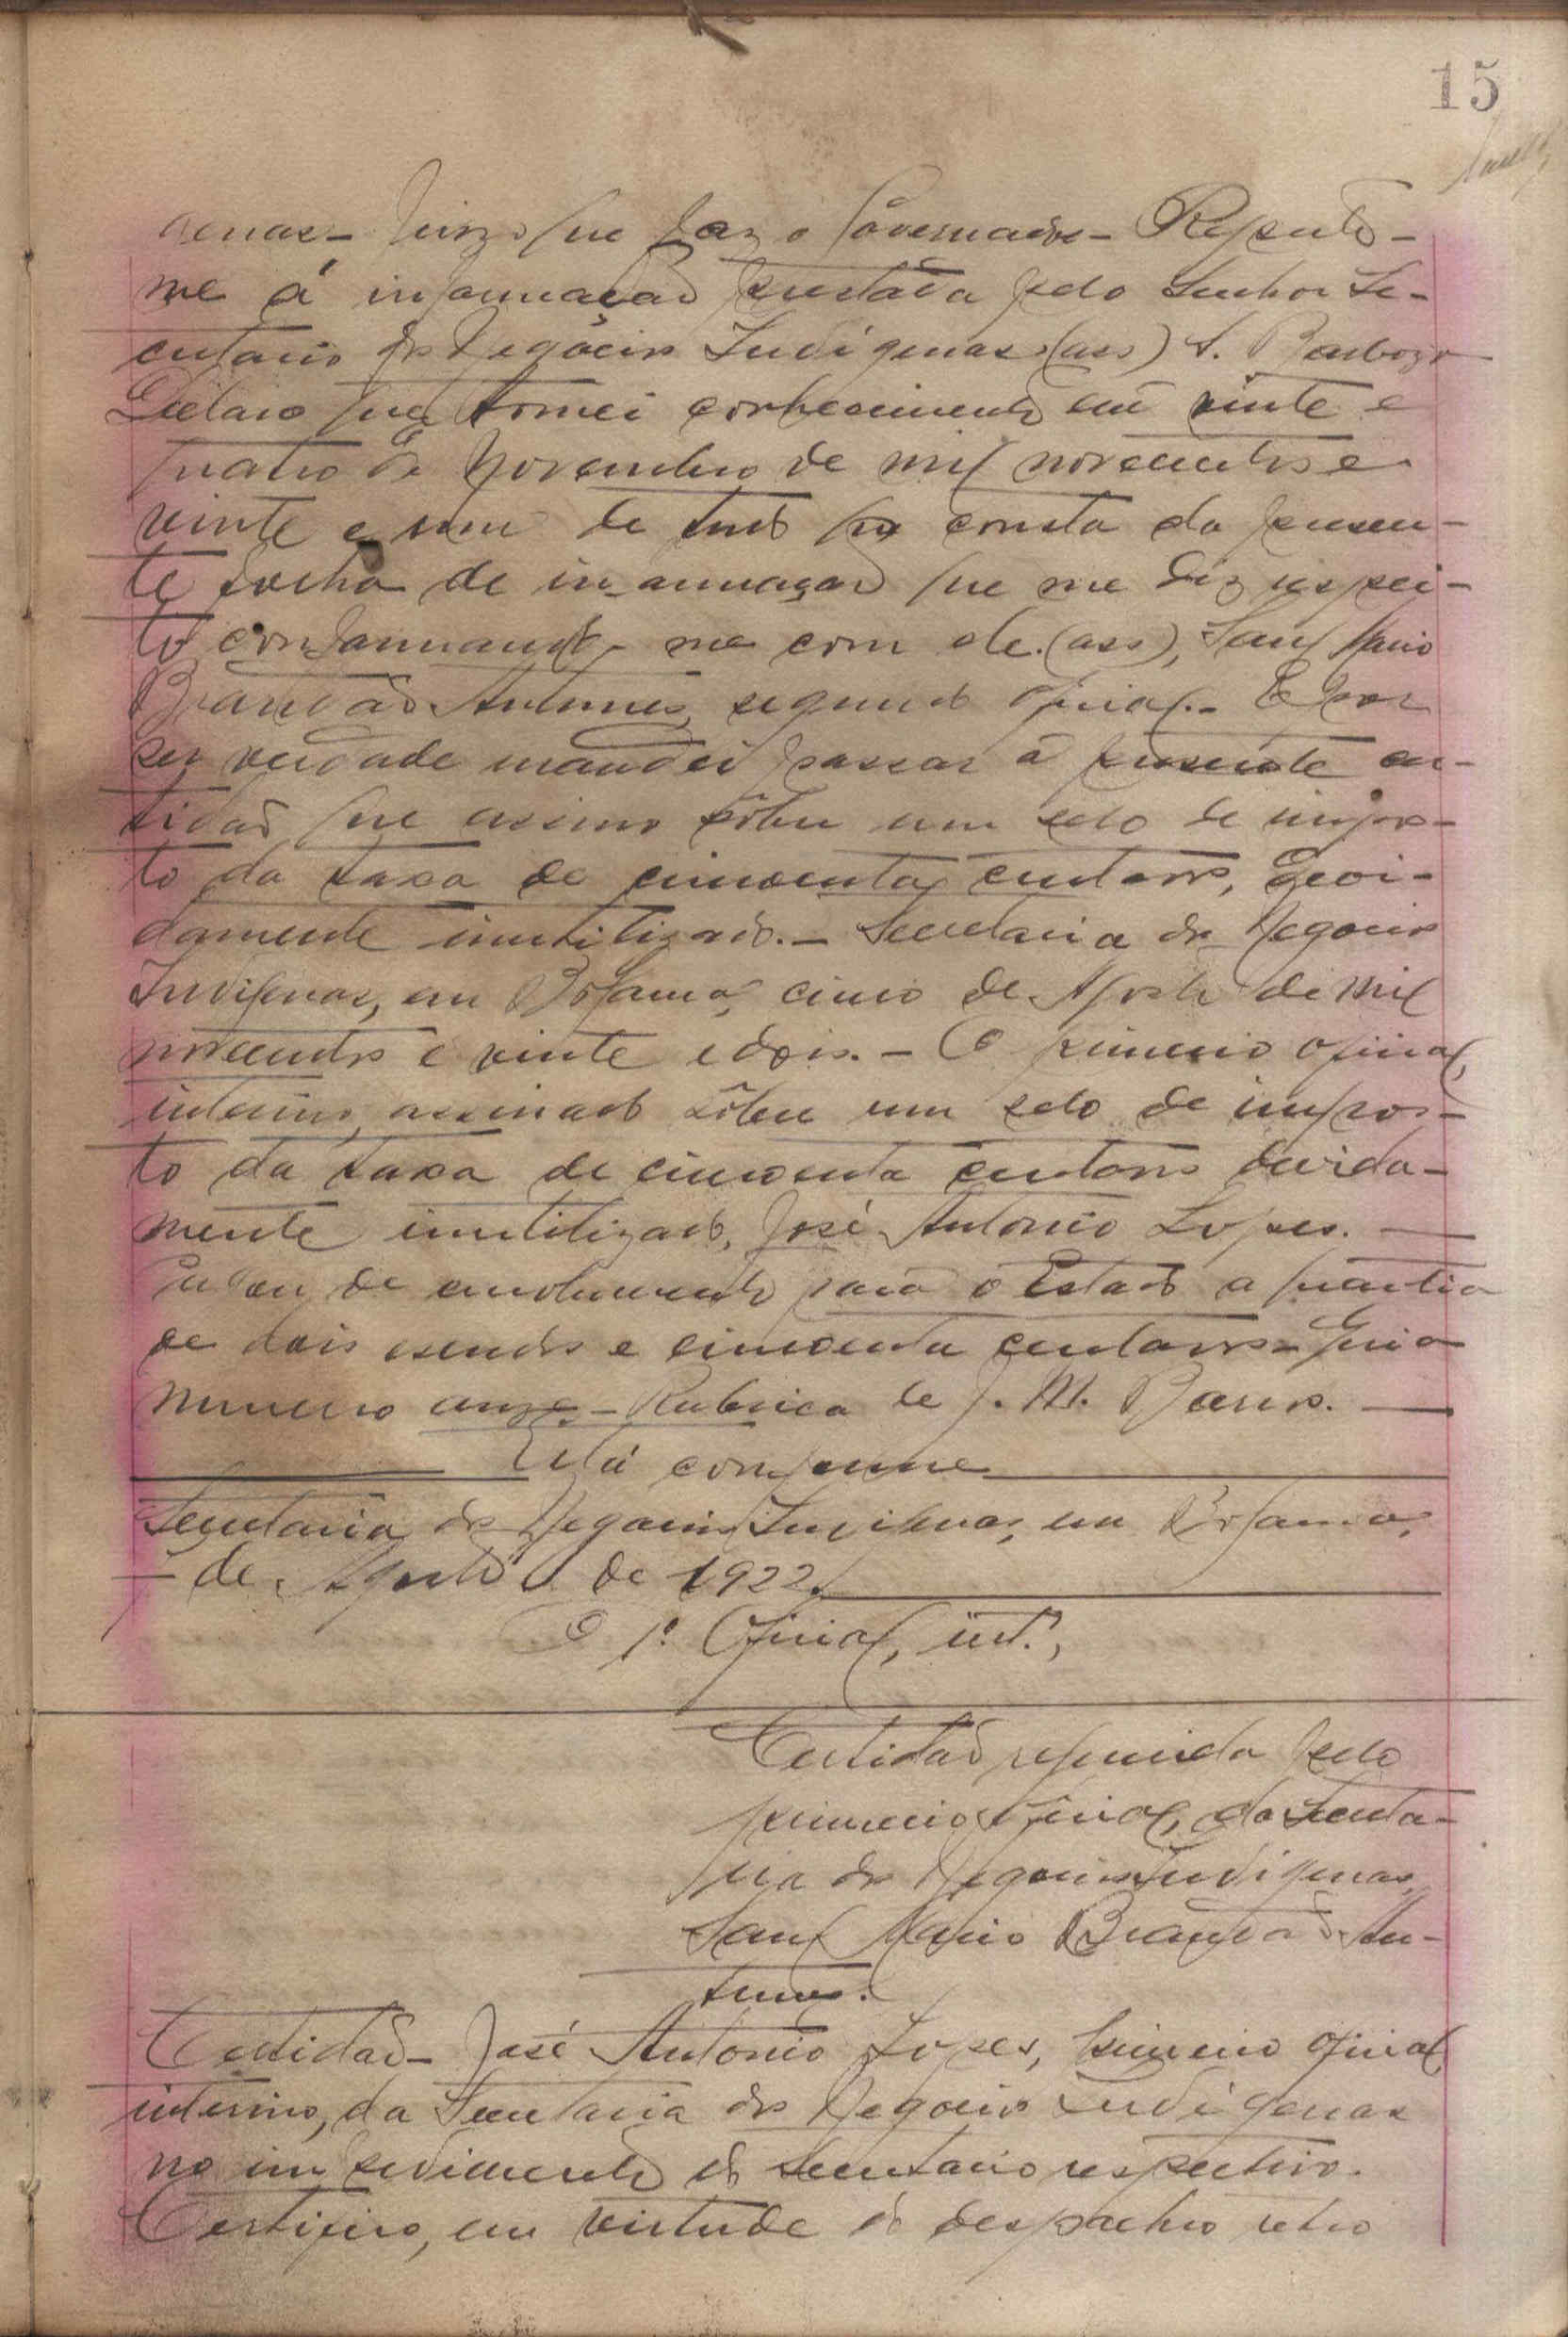 15
genas – Juizo que faz o Governador – Reporto-
me á informação prestada pelo Senhor Se-
cretario dos Negócios Indigenas (ass) S. Barboza
Declaro que tomei conhecimento em vinte e
quatro de Novembro de mil novecentos e
vinte e um de tudo que consta da presen-
te folha de informação que me diz respei-
to conformando-me com ele. (ass), Saul Mario
Brandão Antunes, segundo oficial. – E por
ser verdade mandei passar a presente cer-
tidão que assino sôbre um selo de impos-
to da taxa de cincoenta centavos, devi-
damente inutilizado. – Secretaria dos Negocios
Indigenas, em Bolama, cinco de Agosto de mil
novecentos e vinte e dois. – O primeiro oficial,
interino, assinado sôbre um selo de impos-
to da taxa de cincoenta centavos devida-
mente inutilizado, José Antonio Lopes. –
Pagou de emolumento para o Estado a quantia
de dois escudos e cincoenta centavos – Guia
numero onze – Rubrica de J. M. Barros. –
Está conforme
Secretaria dos Negocios Indigenas, em Bolama,
de Agosto de 1922.
O 1º Oficial, intº,
Certidão requerida pelo
primeiro oficial, da Secreta-
ria dos Negocios Indigenas
Saul Mario Brandão An-
tunes.
Certidão – José Antonio Lopes, primeiro oficial,
interino, da Secretaria dos Negocios Indigenas
no impedimento do Secretario respectivo.
Certifico, em virtude do despacho retro